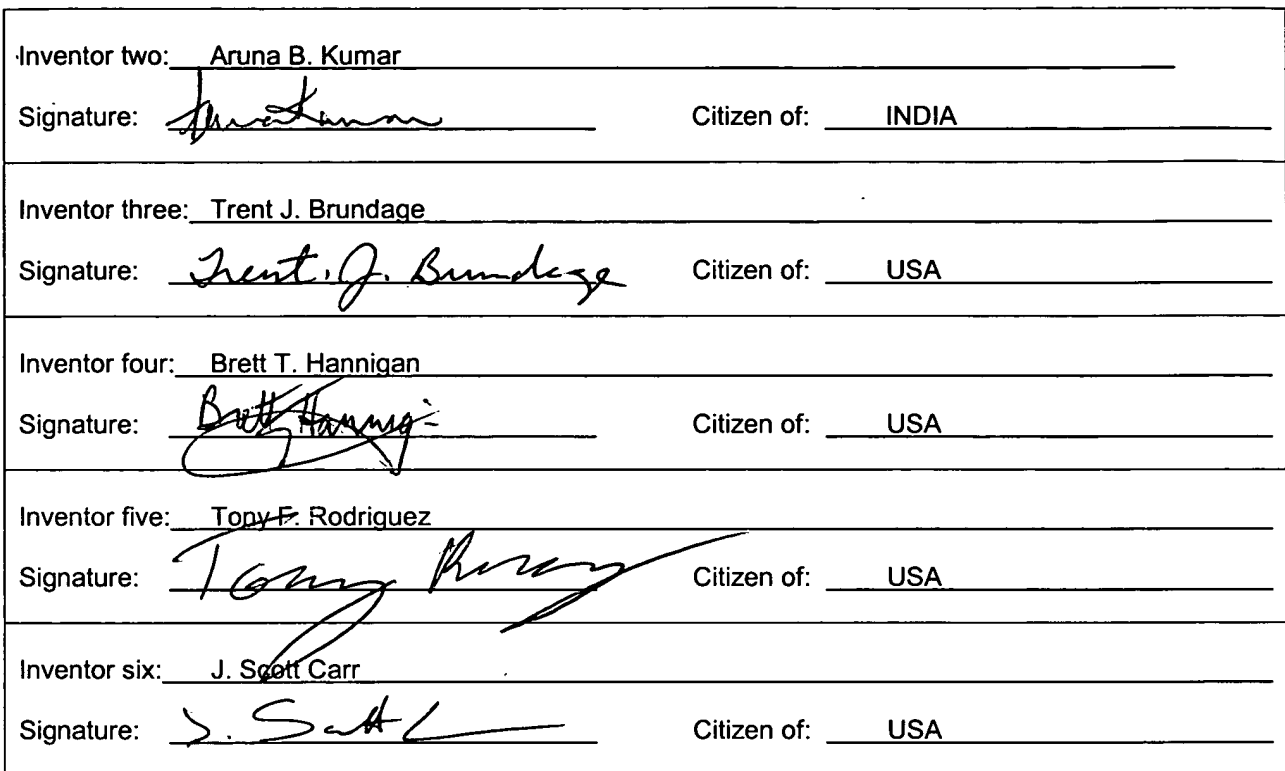 Inventor two: Aruna B. Kumar
Signature: Aruna Kumar Citizen of: INDIA
Inventor three: Trent J. Brundage
Signature: Trent. J. Brundage Citizen of: USA
Inventor four: Brett T. Hannigan
Signature: Brett Hannig Citizen of: USA
Inventor five: Tony F. Rodriguez
Signature: Tony Citizen of: USA
Inventor six: J. Scott Carr
Signature: J. Scott Citizen of: USA